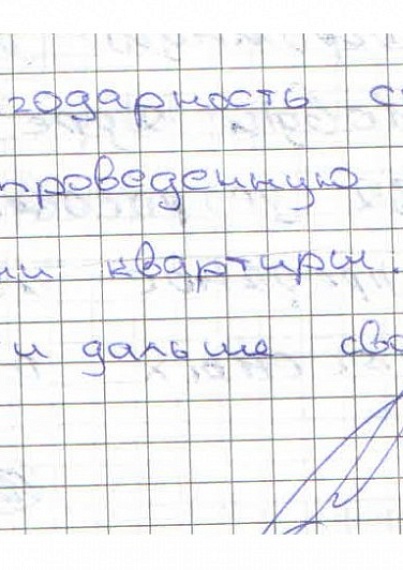 годарность с
проведенную
ии квартиры.
и дальше сво